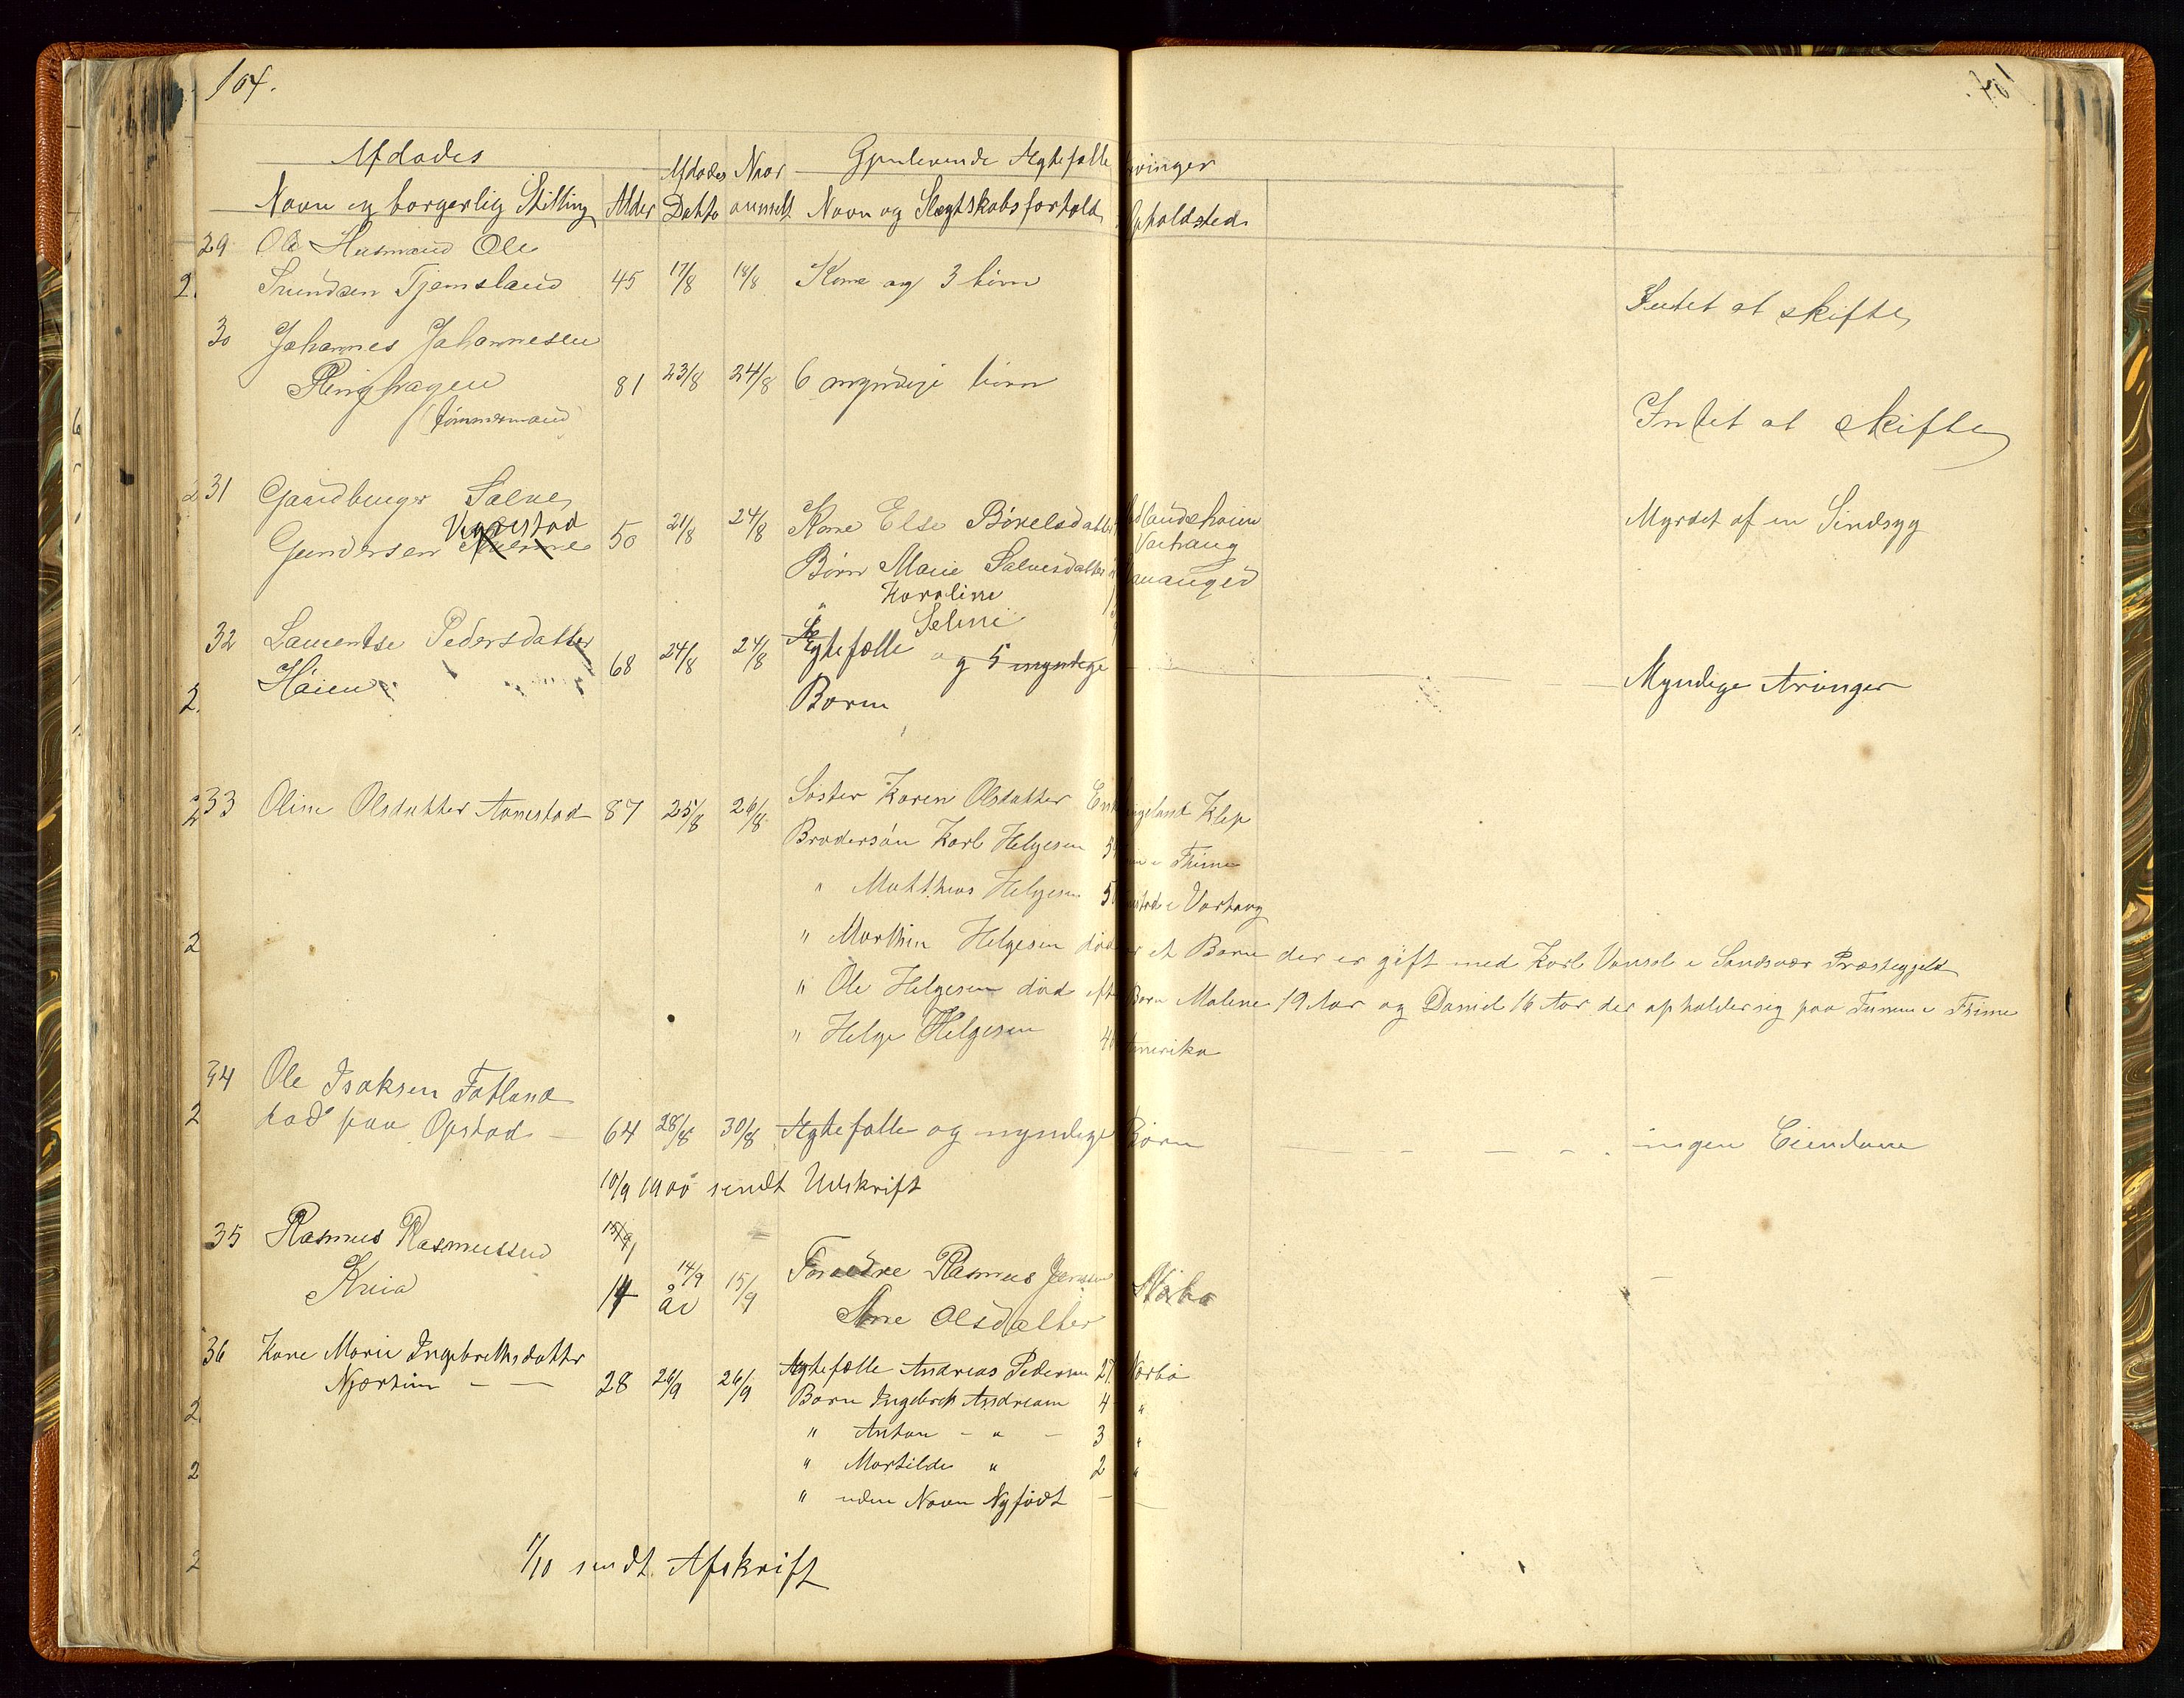 104.
Afdødes
Afdødes Naar Gjenlevende Ægtefælle
Navn og borgerlig Stilling Alder Datto anmeldt Navn og Slægtskabsforhold Opholdsted
29 Husmand Ole
Tjemsland 45 17/8 18/8 Kone og 3 børn Intet at skifte
30 Johannes Johannesen
Ringhagen 81 23/8 24/8 6 myndige børn Intet at skifte
(tømmermand)
31 Gaardbruger Salve
Vigrestad
Gundersen 50 21/8 24/8 Kone Else Børelsdatter Myrdet af en Sindsyg
Varhaug
Børn Marie Salvesdatter
" Karoline
Seline
32 Laurentse Pedersdatter
Høien 68 24/8 24/8 Ægtefælle og 5 myndige Myndige Arvinger
Børn
33 Oline Olsdatter Aanestad 87 25/8 26/8 Søster Karen Olsdatter Klep
Brodersøn Karl Helgesen Thime
" Matthias Helgesen Varhaug
" Marthin Helgesen død et Barn der er gift med Karl i Præstegjeld
" Ole Helgesen død Børn Malene 19 Aar og Daniel 16 Aar der opholder sig paa Tunem i Thime
" Helge Helgesen Amerika
34 Ole Isaksen Fotland
død paa Opstad — 64 28/8 30/8 Ægtefælle og myndige Børn ingen Eiendom
10/9 1900 sendt Udskrift
35 Rasmus Rasmussen 15/9
Kvia 14 14/9 15/9 Forældre Rasmus
år Ane Olsdatter
36 Kone Marie Ingebrethsdatter
Njærheim — — 28 26/9 26/9 Ægtefælle Andreas Pedersen 27 Nærbø
Børn Ingebreth Andreasen 4 "
" Anton - " - 3 "
" Martilde " 2 "
" uden Navn Nyfødt — —
1/10 sendt Afskrift